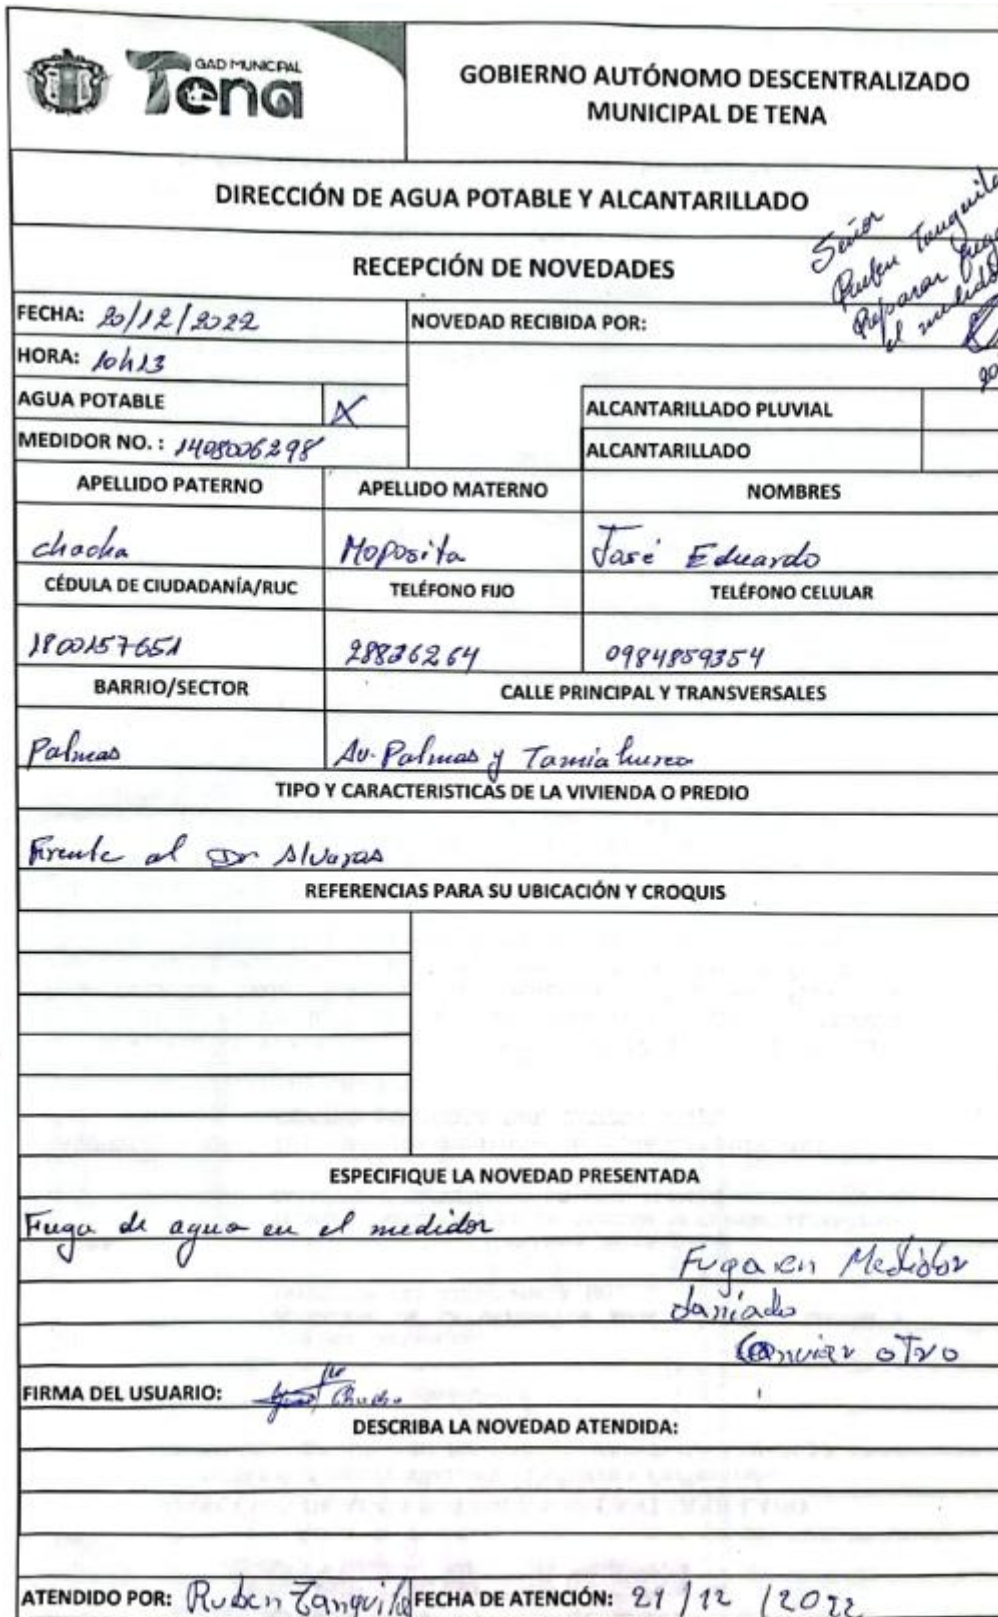 GAD MUNICIPAL
Tena
GOBIERNO AUTÓNOMO DESCENTRALIZADO
MUNICIPAL DE TENA
DIRECCIÓN DE AGUA POTABLE Y ALCANTARILLADO
RECEPCIÓN DE NOVEDADES
Señor
Ruben Tanguila
Reparar fuga
el medidor
FECHA: 20/12/2022
NOVEDAD RECIBIDA POR:
HORA: 10h13
AGUA POTABLE X
ALCANTARILLADO PLUVIAL
MEDIDOR NO. : 1408006298
ALCANTARILLADO
APELLIDO PATERNO APELLIDO MATERNO NOMBRES
chacha Moposita José Eduardo
CÉDULA DE CIUDADANÍA/RUC TELÉFONO FIJO TELÉFONO CELULAR
1800157651 28836264 0984859354
BARRIO/SECTOR CALLE PRINCIPAL Y TRANSVERSALES
Palmas Av. Palmas y Tamiahurco
TIPO Y CARACTERISTICAS DE LA VIVIENDA O PREDIO
Frente al Dr Alvaras
REFERENCIAS PARA SU UBICACIÓN Y CROQUIS
ESPECIFIQUE LA NOVEDAD PRESENTADA
Fuga de agua en el medidor
Fuga en Medidor
daniado
otro
FIRMA DEL USUARIO:
DESCRIBA LA NOVEDAD ATENDIDA:
ATENDIDO POR: Ruben Tanguila FECHA DE ATENCIÓN: 21/12/2022